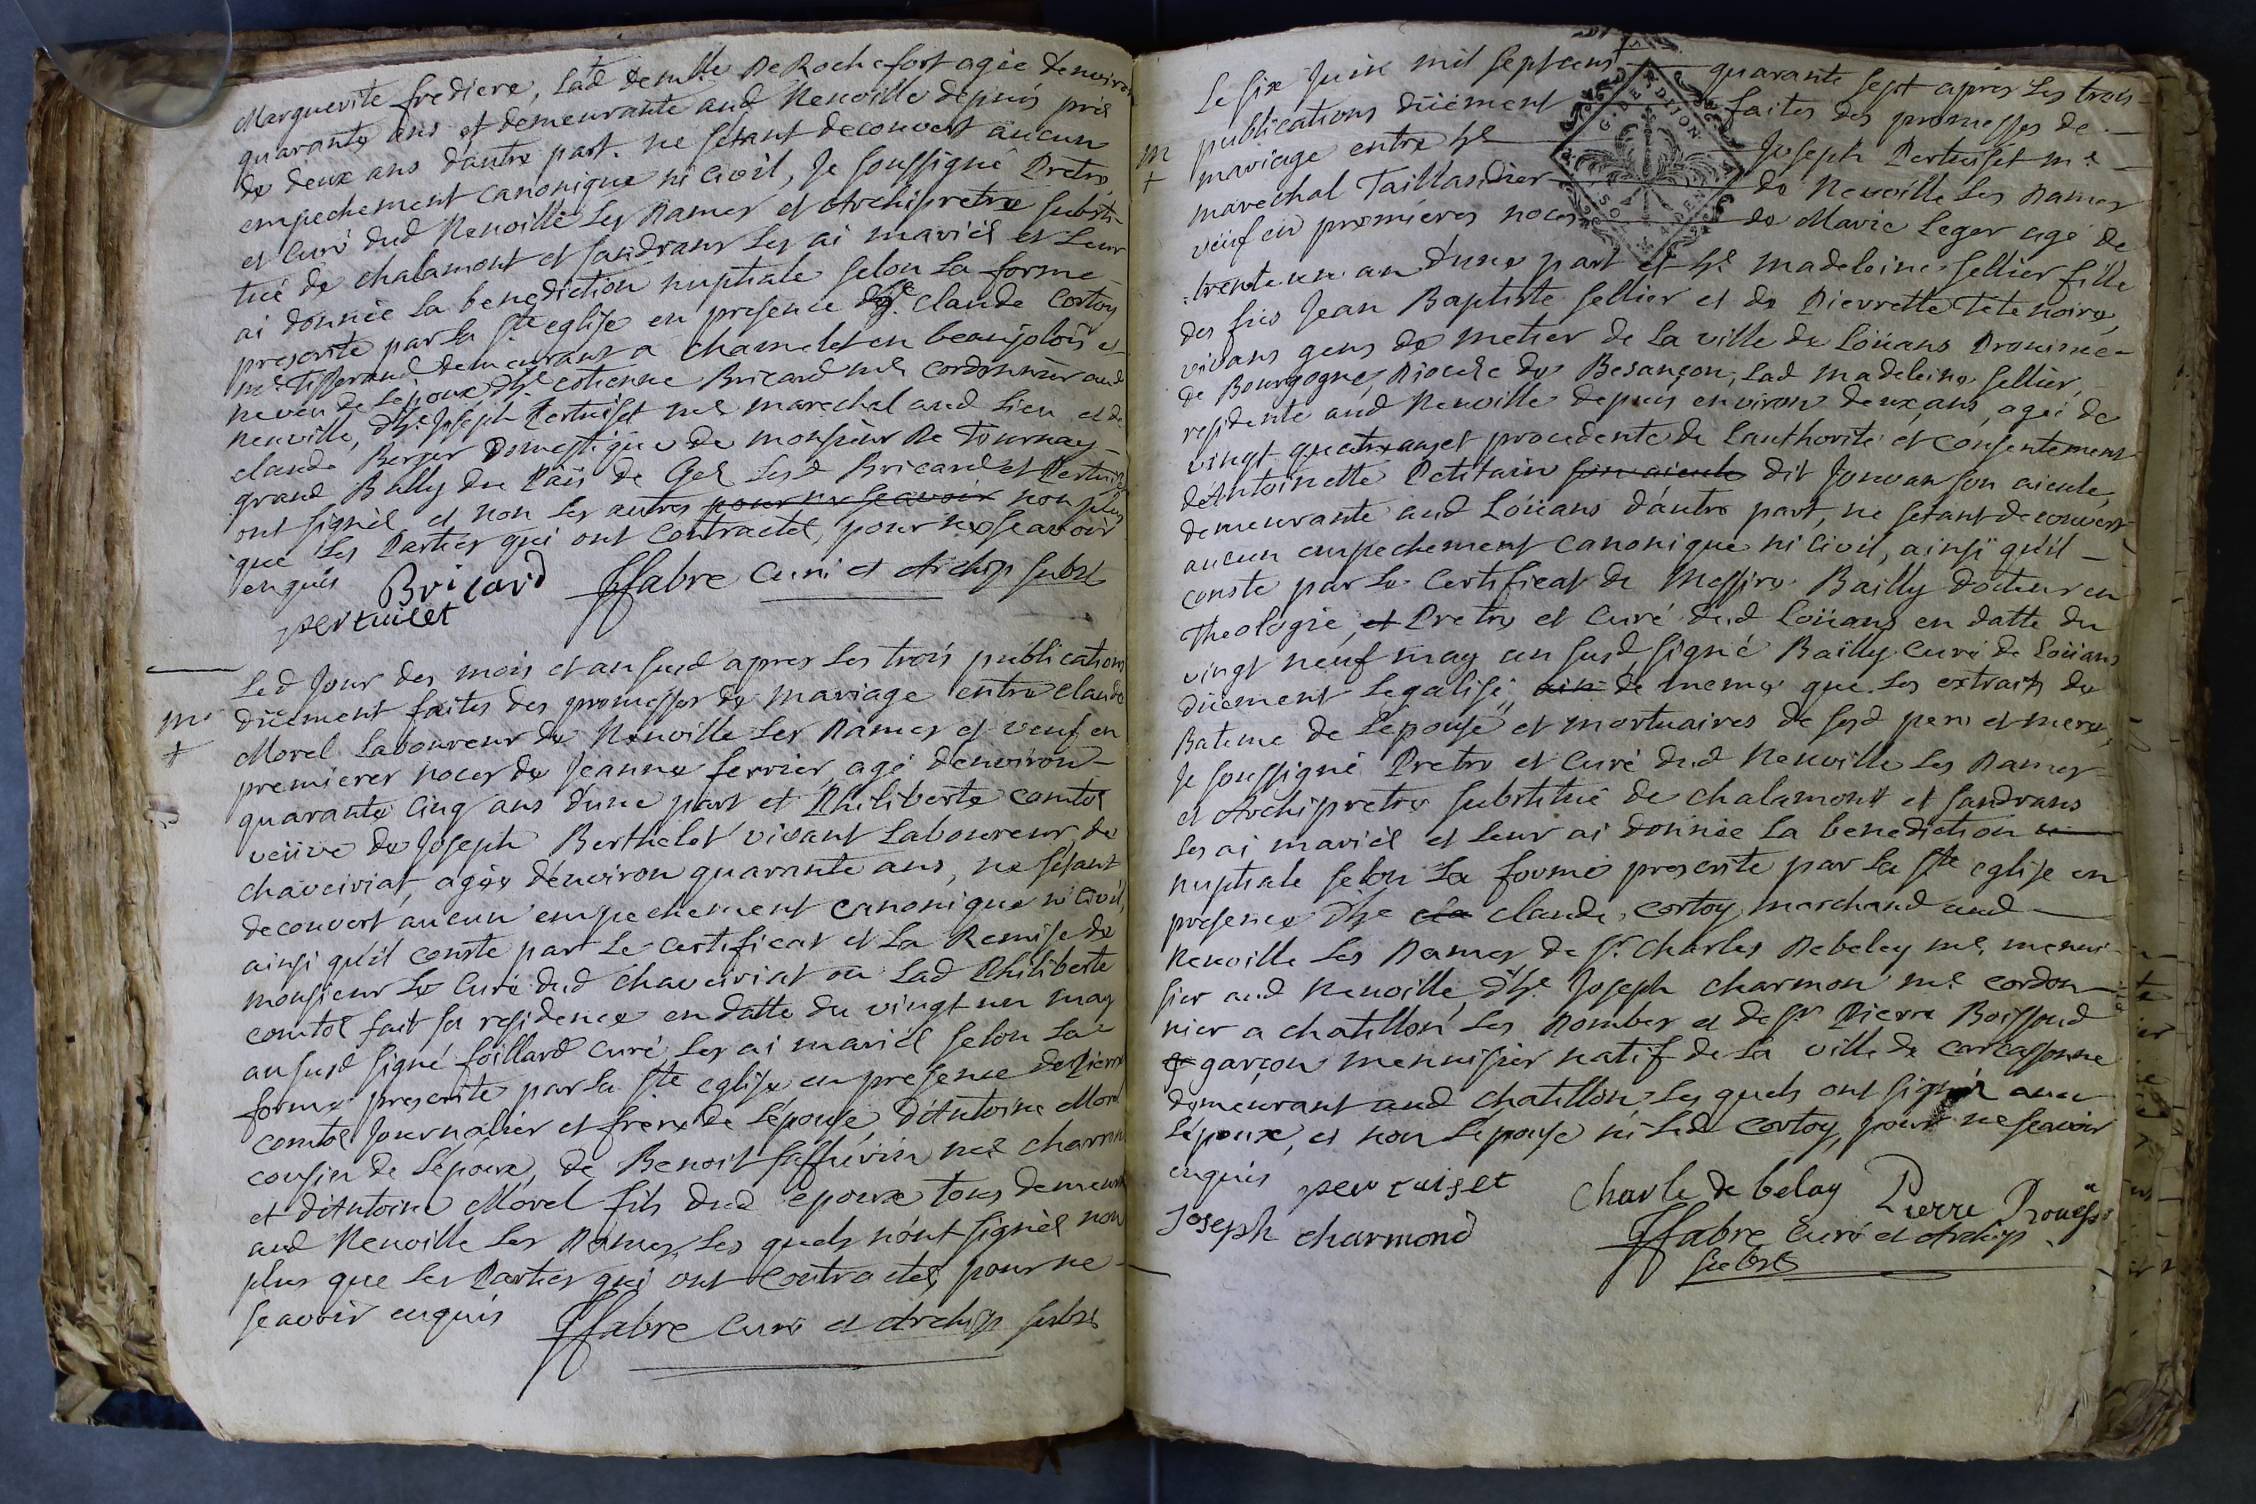 Marguerite frediere, lad demlle De Rochefort agée denviron
quarante ans et demeurante aud Neuville depuis prés
de deux ans d'autre part. ne s'étant decouvert aucun
empechement canonique ni civil, Je soussigné Prêtre
et Curé dud Neuville Les Dames et Archiprêtre substi-
tué de chalamont et sandrans les ai mariés et leur
ai donnée la benediction nuptiale selon la forme
prescrite par la Ste eglise en presence de claude cortoy
me Tisserand demeurant a chamelet en beaujolois et
neveu de l'époux d'he etienne Bricard me cordonnier aud
neuville, d'he Joseph Pertuiset me marechal aud lieu et de
claude Berger Domestique de monsieur De Tournay
grand Bailly du Païs de Gex Lesd Bricard et Pertuiset
ont signés et non les autres pour ne scavoir non plus
que les Parties qui ont contractés, pour ne scavoir
enquis Bricard ffabre Curé et Archip subst
pertuiset
Led Jour des mois et an susd apres les trois publications
düement faites des promesses de mariage entre claude
Morel Laboureur de Neuville les Dames et veuf en
premieres noces de Jeanne ferrier, agé d'environ
quarante cinq ans d'une part et Philiberte comtet
veüve de Joseph Berthelet vivant Laboureur, de
chaveiriat, agée d'environ quarante ans, ne s'étant
decouvert aucun empechement canonique ni civil,
ainsi qu'il conste par le certificat et la Remise de
monsieur le Curé dud chaveiriat ou lad Philiberte
comtet fait sa residence en datte du vingt un may
an susd signé foillard curé, les ai mariés selon la
forme prescrite par la Ste eglise en presence de Pierre
comtet Journalier et frere de l'épouse, d'Antoine Morel
cousin de l'époux, de Benoit me charron
et d'Antoine Morel fils dud époux tous demeurant
aud Neuville les Dames, les quels n'ont signés non
plus que les Parties qui ont contractés, pour ne
scavoir enquis ffabre Curé et Archip subst
m
+
Le six Juin mil sept cens quarante sept apres les trois
publications düement faites des promesses de
mariage entre he Joseph Pertuiset me
marechal Taillandier de Neuville les Dames
veüf en premieres noces de Marie Leger agé de
trente un an d'une part et he madeleine sellier fille
des fus Jean Baptiste sellier et de Pierrette Tête noire,
vivans gens de metier de la ville de Loüans Province
de Bourgogne, Diocése de Besançon, lad madeleine sellier
residente aud Neuville depuis environ deux ans, agée de
vingt quatre ans et procedente de l'authorité et consentement
d'Antoinette Petitain son aieule dit Jouvan son aieule,
demeurante aud Loüans d'autre part, ne s'étant decouvert
aucun empechement canonique ni civil, ainsi qu'il
conste par le certificat de Messire Bailly docteur en
Theologie, et Prêtre et Curé dud Loüans en datte du
vingt neuf may an susd signé Bailly Curé de Loüans
düement legalisé, ain de meme que les extraits de
Bateme de l'epouse et mortuaires de sesd pere et mere,
Je soussigné Prêtre et Curé dud Neuville les Dames
et Archiprêtre substitué de chalamont et sandrans
les ai mariés et leur ai donnée la benediction
nuptiale selon la forme prescrite par la Ste eglise en
presence d'he cla claude cortoy marchand aud
Neuville les Dames de Sr charles Debeley me menui-
sier aud Neuville, d'he Joseph charmon me cordon-
nier a chatillon les Dombes et de Sr Pierre Boissoud
garçon menuisier natif de la ville de carcassonne
demeurant aud chatillon, les quels ont signés avec
l'époux, et non l'épouse ni led cortoy, pour ne scavoir
enquis pertuiset charle de belay Pierre
Joseph charmond ffabre Curé et Archip
subst
m
+
G. DE DIJON